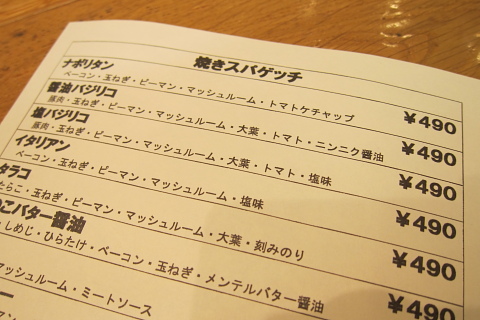 焼きスパゲッチ
ナポリタン
ベーコン・玉ねぎ・ピーマン・マッシュルーム・トマトケチャップ ¥490
醤油バジリコ
豚肉・玉ねぎ・ピーマン・マッシュルーム・大葉・トマト・ニンニク醤油 ¥490
塩バジリコ
豚肉・玉ねぎ・ピーマン・マッシュルーム・大葉・トマト・塩味 ¥490
イタリアン
ベーコン・玉ねぎ・ピーマン・マッシュルーム・塩味 ¥490
タラコ
たらこ・玉ねぎ・ピーマン・マッシュルーム・大葉・刻みのり ¥490
のこバター醤油
・しめじ・ひらたけ・ベーコン・玉ねぎ・メンテルバター醤油 ¥490
マッシュルーム・ミートソース